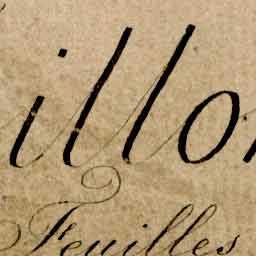 illon
Feuilles